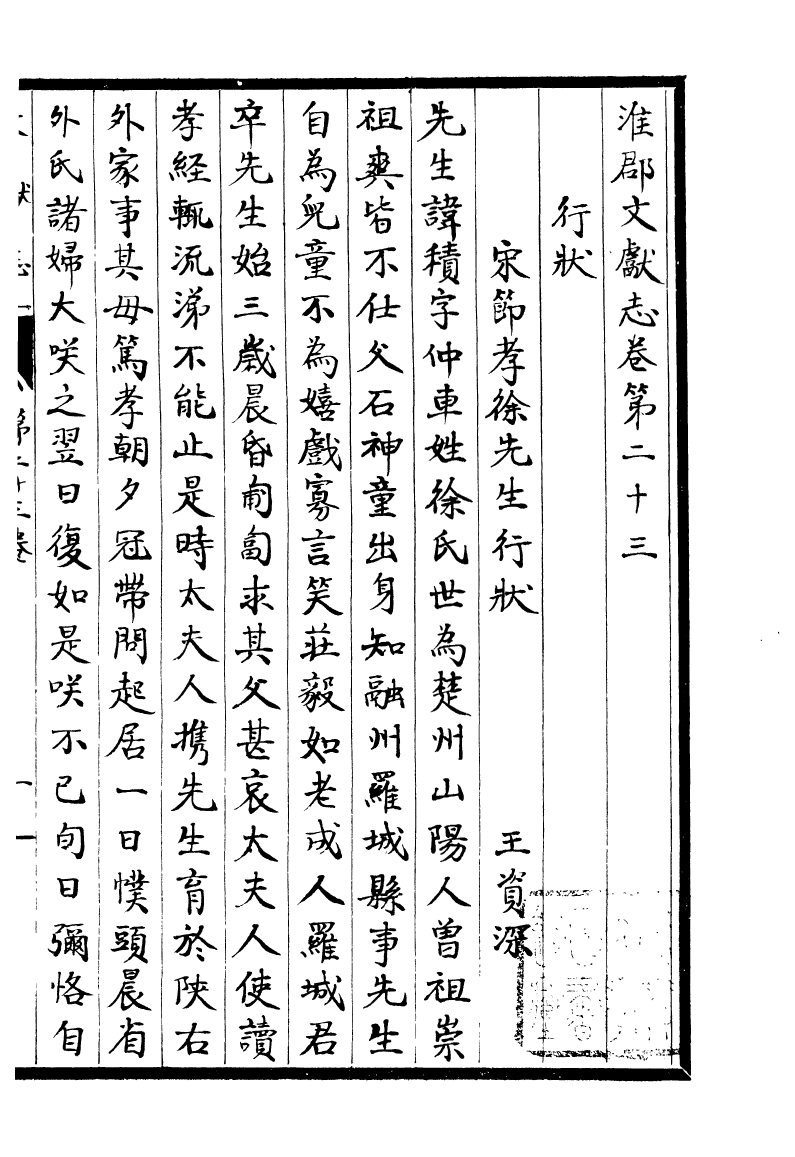 淮郡文獻志卷第二十三
行狀
宋節孝徐先生行狀
王資深
先生諱積字仲車姓徐氏世為楚州山陽人曾祖崇
祖爽皆不仕父石神童出身知融州羅城縣事先生
自為兒童不為嬉戲寡言笑莊毅如老成人羅城君
卒先生始三歲晨昏匍匐求其父甚哀太夫人使讀
孝經輒流涕不能止是時太夫人携先生育於陝右
外家事其母篤孝朝夕冠帶問起居一日幞頭晨省
外氏諸婦大咲之翌日復如是咲不已旬日彌恪自
第二十三卷
一